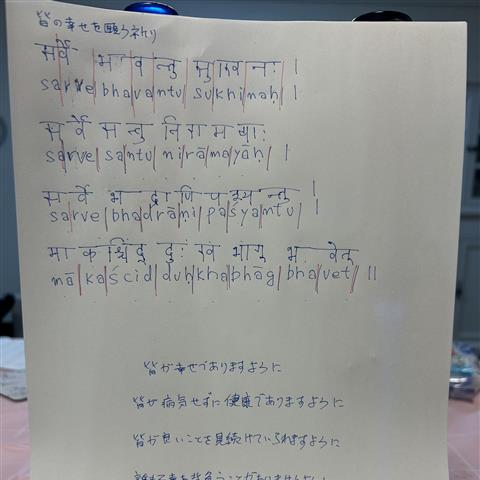 皆の幸せを願う祈り
सर्वे भवन्तु सुखिनः ।
sar/ve/bha/va/ntu/su/khi/naḥ/ ।
सर्वे सन्तु निरामयाः ।
sarve/santu/ni/rā/ma/yāḥ/ ।
सर्वे भद्राणि पश्यन्तु ।
sarve/bha/drā/ṇi/pa/śya/ntu/ ।
मा कश्चिद् दुःख भाग् भवेत्
mā/ka/ścid/duḥ/kha/bhāg/bha/vet/ ॥
皆が幸せでありますように
皆が病気せずに健康でありますように
皆が良いことを見続けていられますように